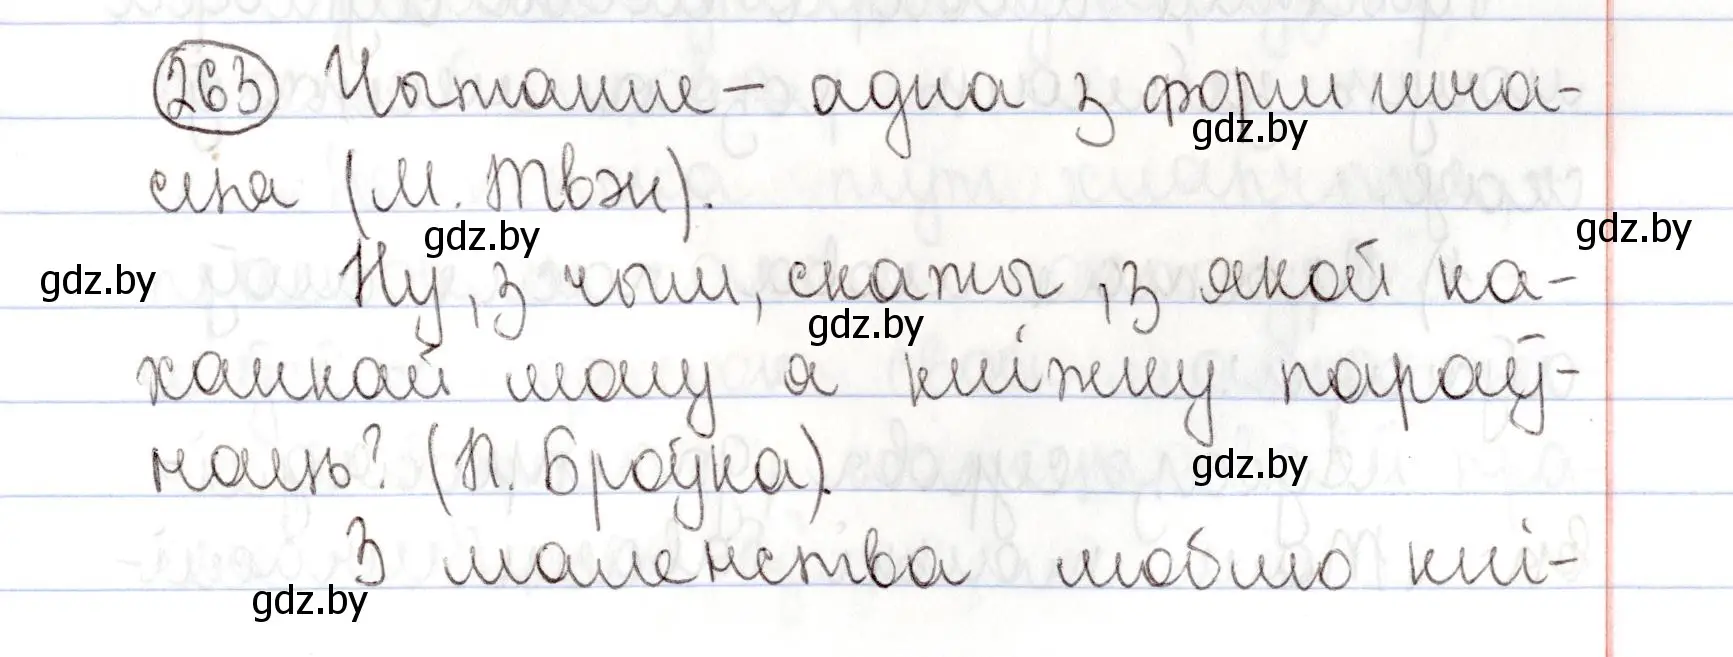 263 Чытанне – адна з форм шча-
gdz.by
сця (М. Твэн).
gdz.by
gdz.by
gdz.by
Ну, з чым, скажы, з якой ка-
gdz.by
ханкай магу я кніжку параў-
наць? (П. Броўка).
gdz.by
З маленства люблю кні-
gdz.by